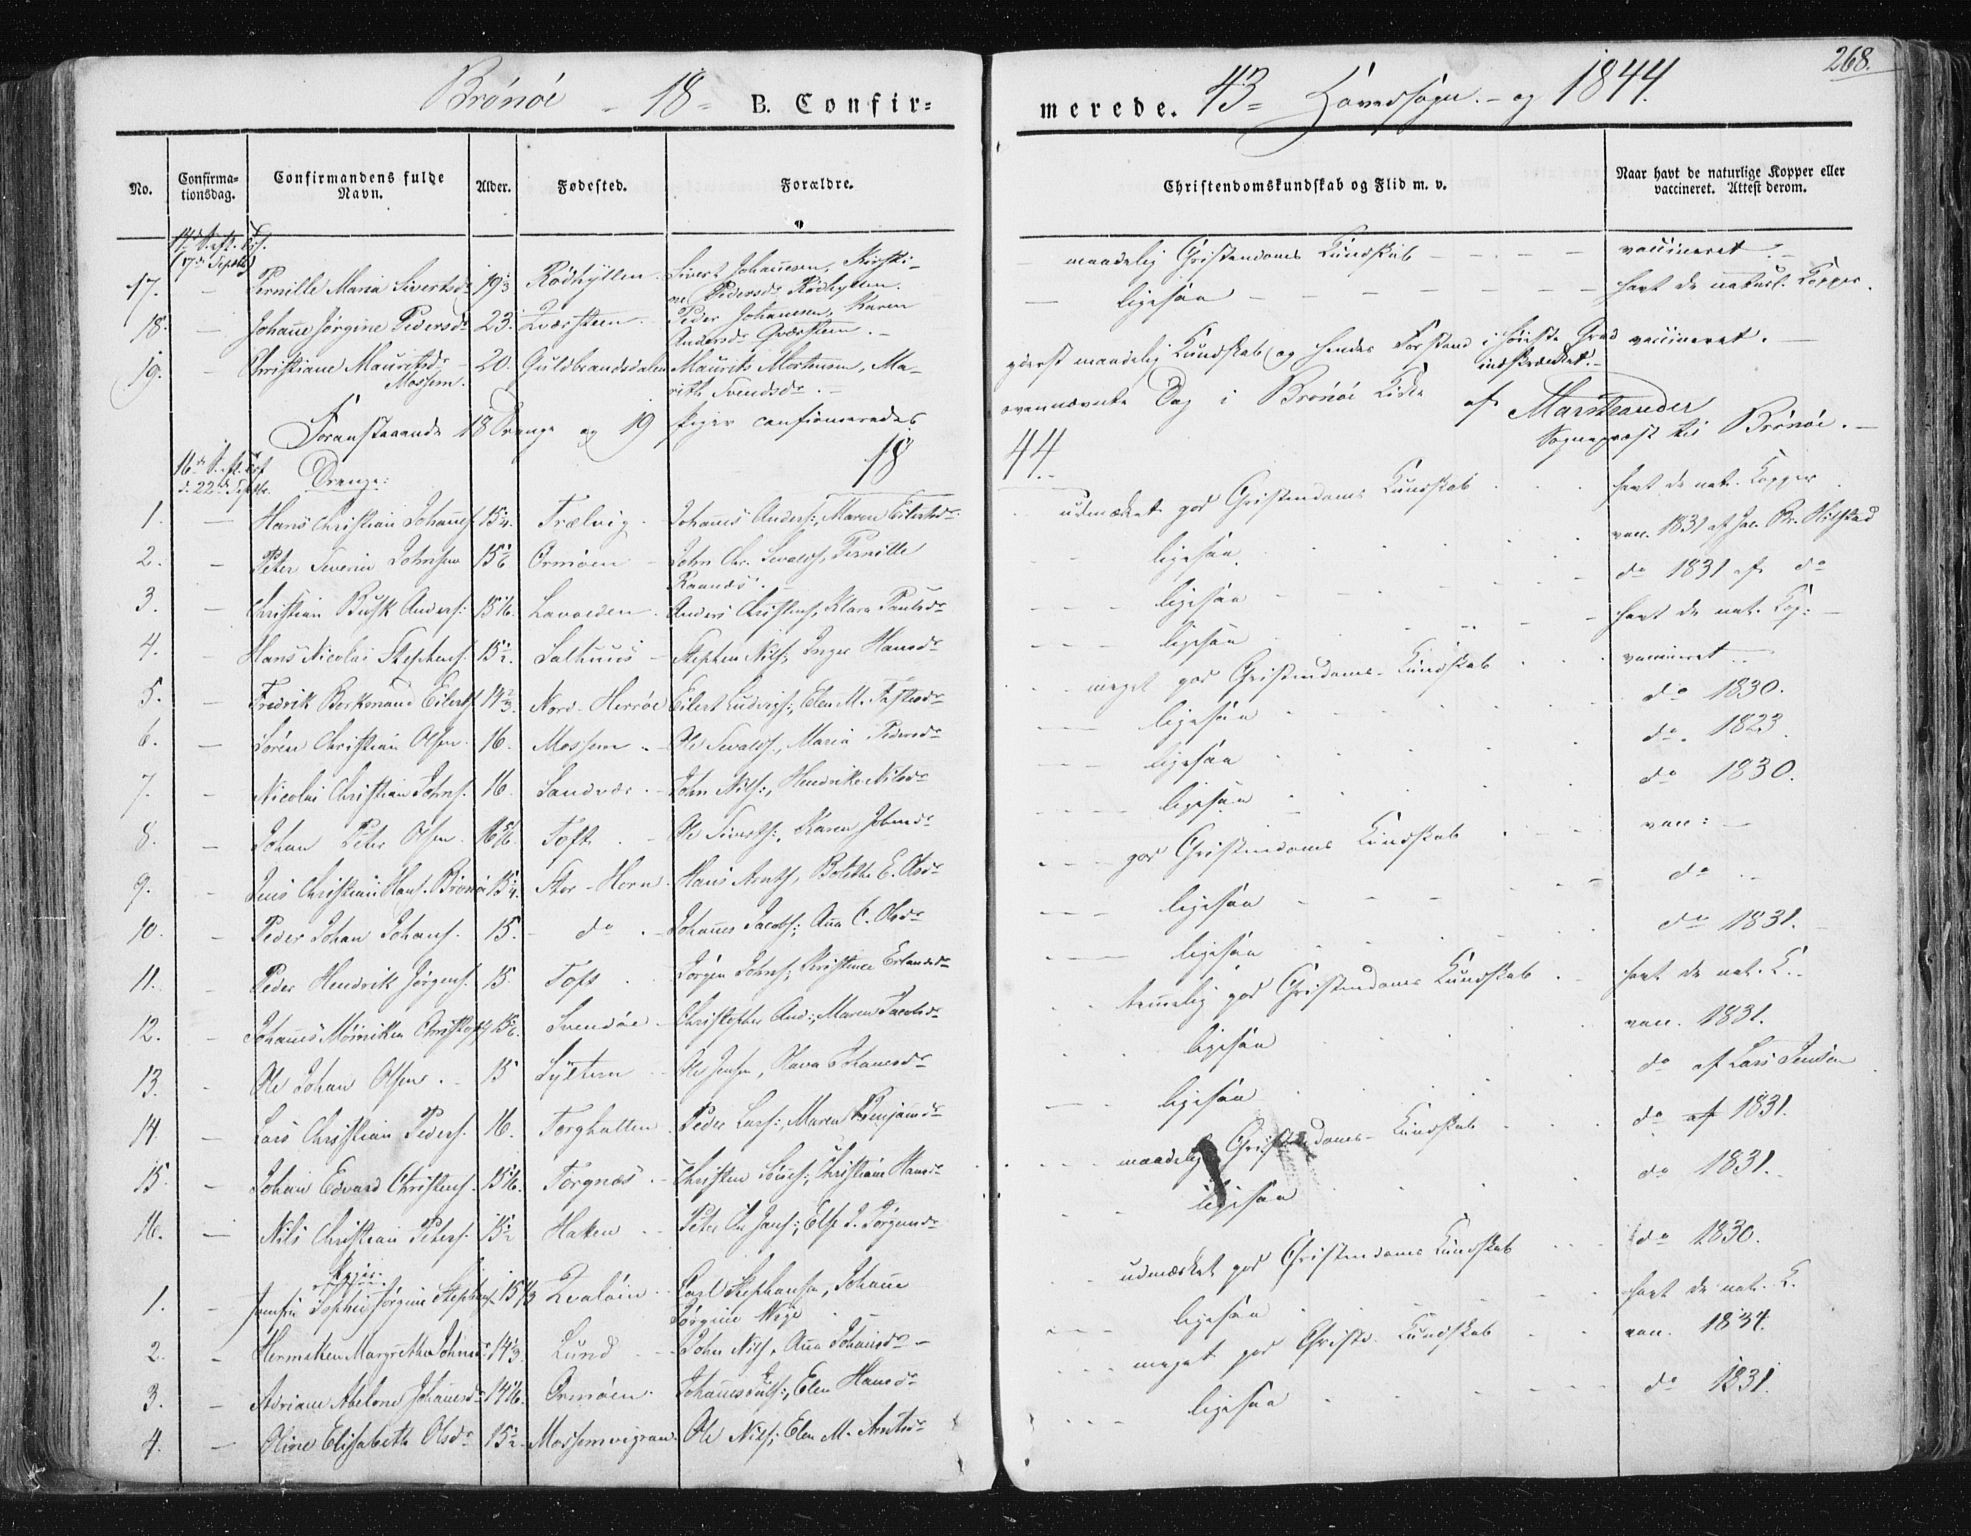 Brönöe - 18 = B. Confir= merede. 43 = Hovedsogn. - og 1844. 268.
No. Confirma-tionsdag. Confirmandens fulde Navn. Alder. Fødested. Forældre. Christendomskundskab og Flid m. v. Naar havt de naturlige Kopper eller vaccineret. Attest derom.
(17de Septbr)
17. - Pernille Maria Sivertsdr 19 Rødhyllen. Sivert Johannesen, Kirsti-ne Pedersdr Rødhyllen. maadelig Christendoms Kundskab vaccineret.
18. - Johanne Jørgine Pedersdr 23. Qværsteen. Peder Johannesen, Karen Andersdr Qværsteen. ligesaa havt de naturl. Kopper.
19. - Christiane Mauritsdr Mossem. 20. Guldbrandsdalen Maurits Mortensen, Ma-rith Svendsdr. yderst maadelig Kundskab og hendes Forstand i høieste Grad indskrænket. vaccineret.
Foranstaaende 18 Drenge og 19 Piger confirmeredes ovennævnte Dag i Brönöe Kirke af
Sognepræst til Brönöe.
18 44.
16de S. eft. Trf. d. 22de Septbr. Drenge:
1. - Hans Christian Johannes. 15 Trælvig. Johannes Anders:, Maren Eilertsdr. udmærket god Christendoms Kundskab havt de nat. Kopper.
2. - Peter Severin Johnsen 15 Ormøen John Chr. Sivalds, Pernille ligesaa. vac. 1831 af
3. - Christian Busk Anders: 15 Anders Christens, Klara Paulsdr ligesaa do 1831 af do
4. - Hans Nicolai Stephens. 15 Salhuus - Stephen Nils:, Inger Hansdr ligesaa havt de nat. Kop:
5. - Fredrik Eilerts. 14 Nord-Herröe Eilert Ludvigs:, Elen M. meget god Christendoms-Kundskab vaccineret
6. - Sören Christian Olsen. 16. Mossem - Ole Sivalds., Maria Pedersdr ligesaa do 1830.
7. - Nicolai Christian Johns. 16. Sandvær. - John Nils:, Hendrike Nilsdr ligesaa do. 1823
8. - Johan Peter Olsen 16 Toft. Ole Siverts:, Karen Johnsdr ligesaa do 1830.
9. - Jens Christian Hans. Brönöe 15 Stor-Horn. Hans Arnts, Bolethe E. Olsdr god Christendoms Kundskab vacc:
10. - Peder Johan Johans. 15. - do - Johannes Jacobs:, Ana C. Olsdr ligesaa do
11. - Peder Hendrik Jørgens. 15. Toft Jørgen Johns:, Kirstence Erlandsdr ligesaa do 1831.
12. - Johannes Christoph 15 Svendöe - Christopher And:, Maren Jacobsdr temmelig god Christendoms Kundskab havt de nat. K.
13. - Ole Johan Olsen. 15 Syltern Ole Jensen, Johannesdr ligesaa vac. 1831.
14. - Lars Christian Peders. 16. Torghatten Peder Lars:, Maren Benjamsdr ligesaa do af Lars Jensen
15. - Johan Edvard Christens. 15 Torgnæs. Christen, Christiane Hansdr maadelig Christendoms-Kundskab do af 1831.
16. - Nils Christian Peters. 15 Hatten Peter Jans:, Else J. Jørgensdr ligesaa do 1831.
Piger.
1. - Jomfru Sophie Jørgine Stephansen 15 Carl Stephansen, Johanne Jørgine udmærket god Christendoms Kundskab do 1830.
2. - Margrethe Johnsdr 14 Lund John Nils, Ana Johansdr ligesaa havt de nat. K.
3. - Adriane Abelone Johannesdr 14 Ormøen. Johannes, Elen Hansdr meget god Christd. Kundskab vac. 1834.
4. - Oline Elisabeth Olsdr 15 Mossemvigran. Ole Nils:, Elen M. Arntsdr ligesaa do 1831.